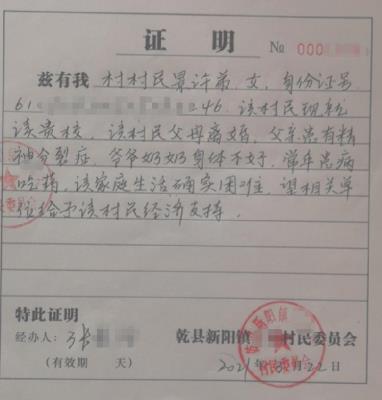 证 明
№ 000
兹有我 村村民晏许弟,女,身份证号
61 246,该村民现就
读贵校,该村民父母离婚,父亲患有精
神分裂症,爷爷奶奶身体不好,常年患病
吃药,该家庭生活确实困难,望相关单
位给予该村民经济支持。
特此证明
经办人:张
乾县新阳镇 村民委员会
(有效期 天)
2021年 月22日